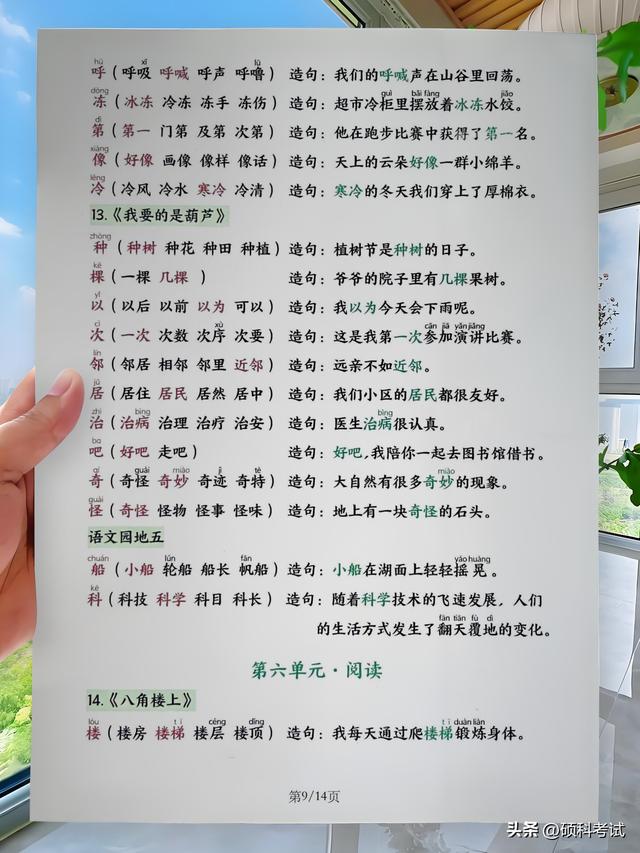 hū xī lū
呼（呼吸 呼喊 呼声 呼噜） 造句：我们的呼喊声在山谷里回荡。
dòng guì bǎi fàng jiǎo
冻（冰冻 冷冻 冻手 冻伤） 造句：超市冷柜里摆放着冰冻水饺。
dì
第（第一 门第 及第 次第） 造句：他在跑步比赛中获得了第一名。
xiàng
像（好像 画像 像样 像话） 造句：天上的云朵好像一群小绵羊。
lěng
冷（冷风 冷水 寒冷 冷清） 造句：寒冷的冬天我们穿上了厚棉衣。
13.《我要的是葫芦》
zhòng
种（种树 种花 种田 种植） 造句：植树节是种树的日子。
kē
棵（一棵 几棵 ） 造句：爷爷的院子里有几棵果树。
yǐ
以（以后 以前 以为 可以） 造句：我以为今天会下雨呢。
cì xù cān jiā yǎn jiǎng
次（一次 次数 次序 次要） 造句：这是我第一次参加演讲比赛。
lín
邻（邻居 相邻 邻里 近邻） 造句：远亲不如近邻。
jū
居（居住 居民 居然 居中） 造句：我们小区的居民都很友好。
zhì bìng bìng
治（治病 治理 治疗 治安） 造句：医生治病很认真。
ba
吧（好吧 走吧） 造句：好吧,我陪你一起去图书馆借书。
qí guài miào jì tè miào
奇（奇怪 奇妙 奇迹 奇特） 造句：大自然有很多奇妙的现象。
guài
怪（奇怪 怪物 怪事 怪味） 造句：地上有一块奇怪的石头。
语文园地五
chuán lún fān yáo huàng
船（小船 轮船 船长 帆船） 造句：小船在湖面上轻轻摇晃。
kē
科（科技 科学 科目 科长） 造句：随着科学技术的飞速发展，人们
fān tiān fù dì
的生活方式发生了翻天覆地的变化。
第六单元·阅读
14.《八角楼上》
lóu tī céng dǐng tī duàn liàn
楼（楼房 楼梯 楼层 楼顶） 造句：我每天通过爬楼梯锻炼身体。
第9/14页
头条 @硕科考试